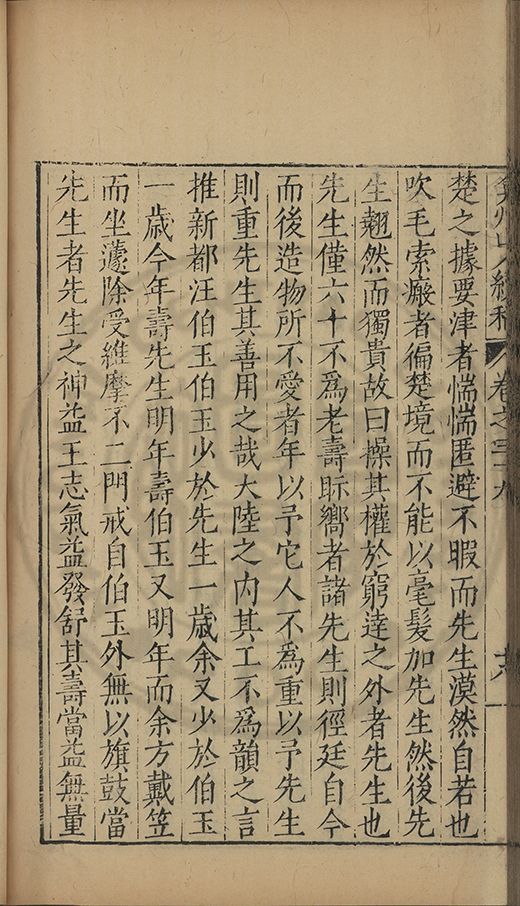 卷之三十九
楚之據要津者惴惴匿避不暇而先生漠然自若也
吹毛索瘢者徧楚境而不能以毫髮加先生然後先
生翹然而獨貴故曰操其權於窮達之外者先生也
先生僅六十不爲老壽眎嚮者諸先生則徑廷自今
而後造物所不愛者年以予它人不爲重以予先生
則重先生其善用之哉大陸之内其工不爲韻之言
推新都汪伯玉伯玉少於先生一歲余又少於伯玉
一歲今年壽先生明年壽伯玉又明年而余方戴笠
而坐蘧除受維摩不二門戒自伯玉外無以旗鼓當
先生者先生之神益王志氣益發舒其壽當益無量